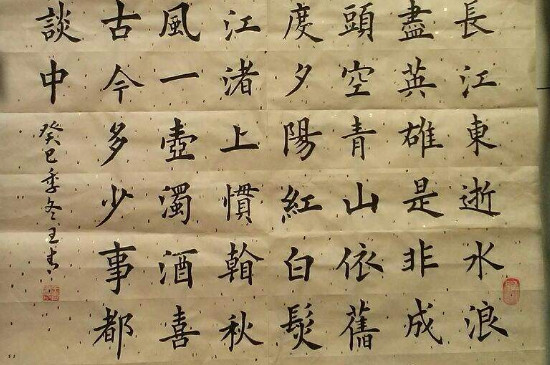 長江東逝水浪
盡英雄是非成
頭空青山依舊
度夕陽紅白髮
江渚上慣看秋
風一壺濁酒喜
古今多少事都
談中
癸巳季冬王